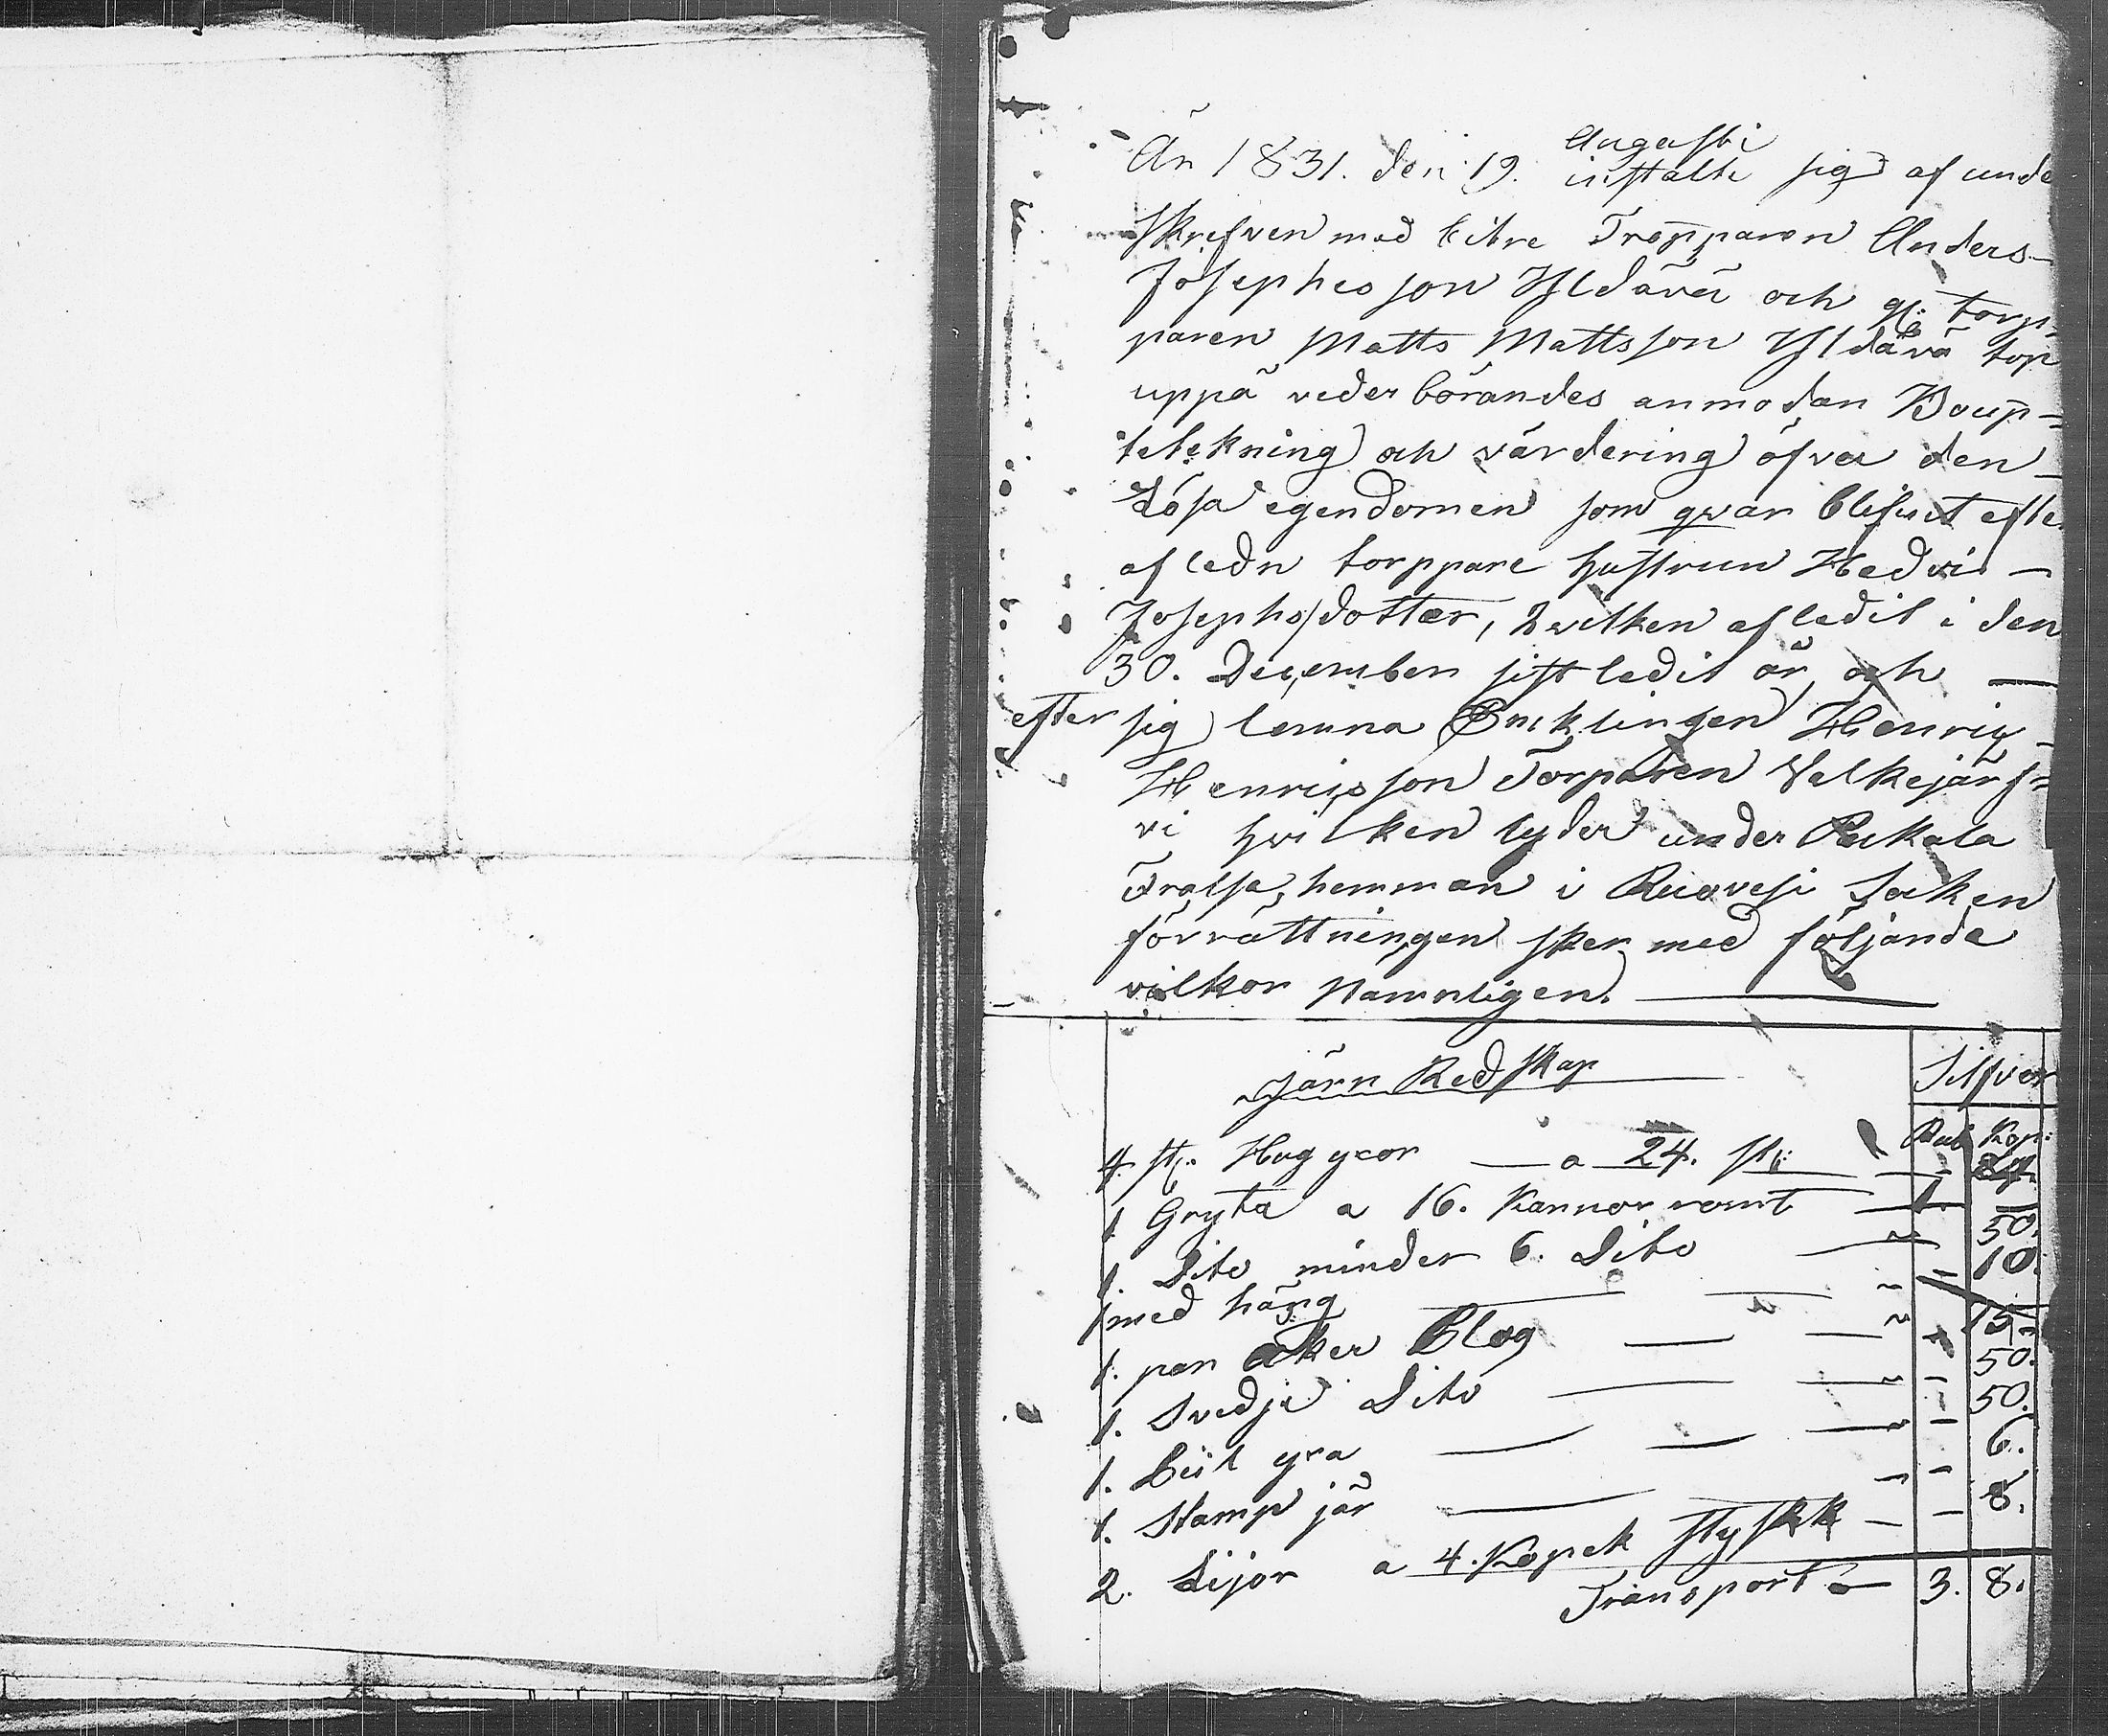 År 1831. den 19. Augusti
instälte sig af unde
skrefven med bitre Tropparen Anders
Josephsson Yldävä och gl: torp
paren Matts Mattsson Yldävä
uppå vederbörandes anmodan Boup-
tekning och värdering öfver den
Lösa egendomen som qwar blifvit efte
afledn torppare hustrun Hedvi
Josephsdotter, hvilken afledit i den
30. December sistledit år och
efter sig lemna Encklingen Henrig
Henrigsson Torparen Valkejärf-
vi hvilken lyder under Pukala
Fralse hemman i Ruovesi Socken
förrättningen sker med följande
vilkor Nämnligen.
Järn Redskap
Silfver
Rub Kop:
4 st: Hug yxor a 24. st:
1 Gryta a 16. Kannor romt 1 50.
1. Dito minder 6. Dito 10.
med häng 15
1. par åker Plog 50.
1. Svedje Dito 50.
1. Biil yxa 6.
1. Stamp jär 8.
2. Lijor a 4. Kopek stykk
Transport 3. 8.